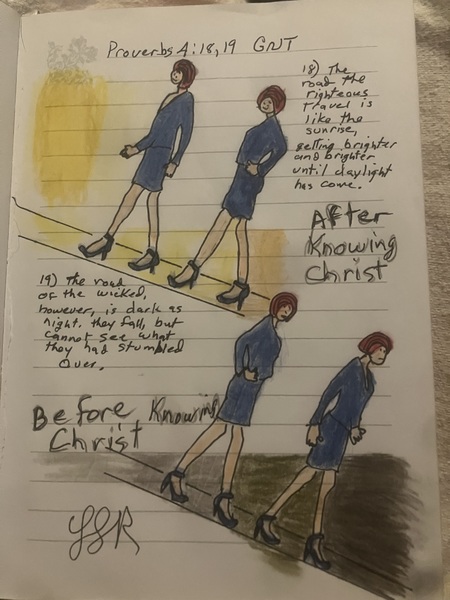 Proverbs 4:18,19 GNT
18) The
road the
righteous
travel is
like the
sunrise,
getting brighter
and brighter
until daylight
has come.
After
Knowing
Christ
19) The road
of the wicked,
however, is dark as
night. they fall, but
cannot see what
they had stumbled
over.
Before Knowing
Christ